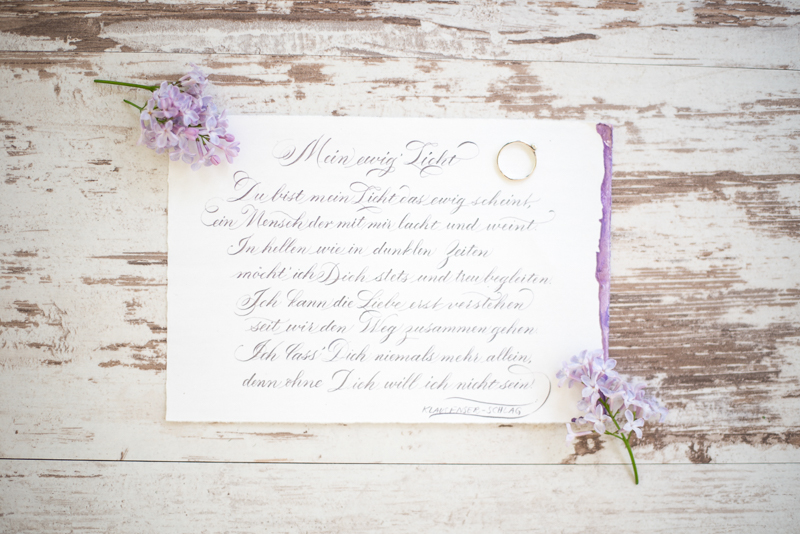 Mein ewig' Licht
Du bist mein Licht das ewig scheint,
ein Mensch der mit mir lacht und weint.
In hellen wie in dunklen Zeiten
möcht' ich Dich stets und treu begleiten.
Ich kann die Liebe erst verstehen
seit wir den Weg zusammen gehen.
Ich lass' Dich niemals mehr allein,
denn ohne Dich will ich nicht sein